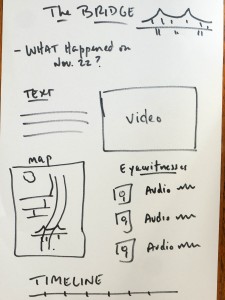 The BRIDGE
- WHAT Happened on
Nov. 22?
TEXT
Video
map
Eyewitnesses
Audio
Audio
Audio
TIMELINE